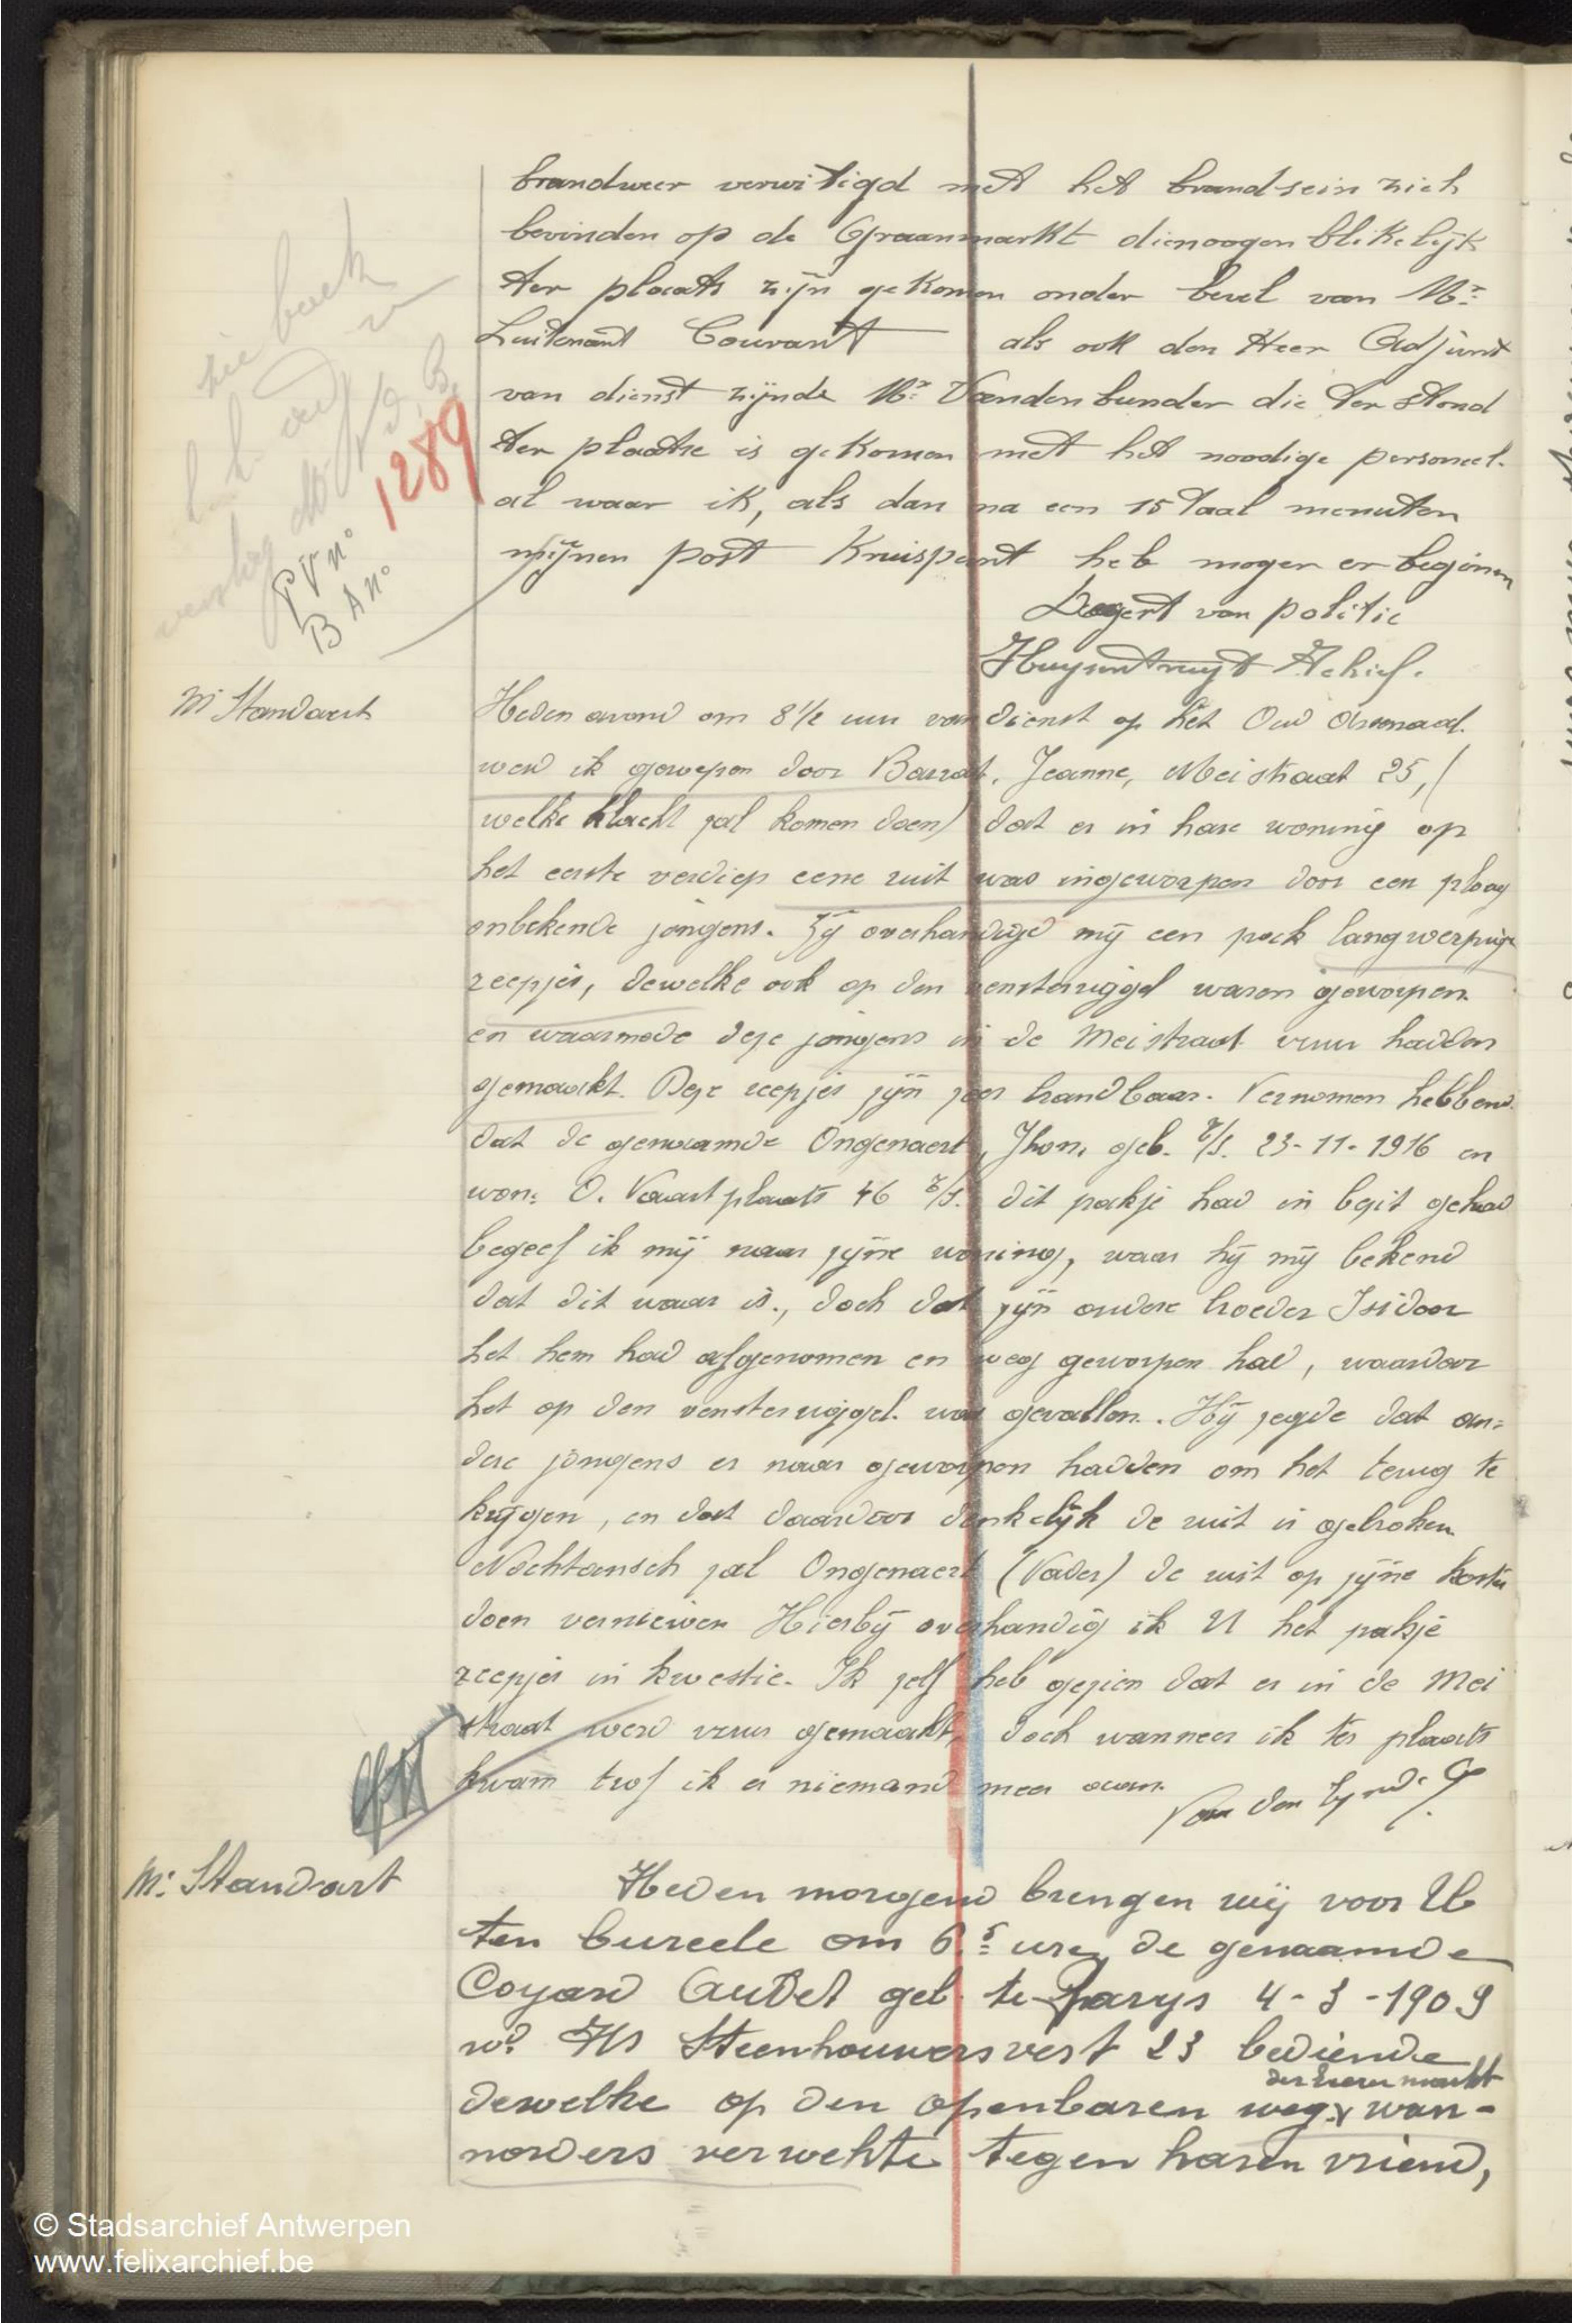 brandweer verwittigd met het brandsein zich
bevinden op de Graanmarkt dienoogenblikelijk
ter plaats zijn gekomen onder bevel van Mr
Luitenant Couvant als ook den Heer Adjunt
van dienst zijnde Mr Vandenbunder die ter stond
ter plaatse is gekomen met het noodige personeel.
al waar ik, als dan na een 15 taal menuten
mijnen post Kruispunt heb mogen er beginnen
1289
PV n°
B A n°
van politie
Huysentruyt Achiel.
Mr Standaert
Heden avond om 8 1/2 uur van dienst op het Oud Arsenaal.
werd ik geroepen door Jeanne, Meistraat 25, (
welke klacht zal komen doen) dat er in hare woning op
het eerste verdiep eene ruit was ingeworpen door een ploeg
onbekende jongens. Zij overhandigd mij een pack langwerpige
reepjes, dewelke ook op den vensterriggel waren geworpen
en waarmede deze jongens in de Meistraat vuur hadden
gemaakt. Deze reepjes zijn zeer brandbaar. Vernomen hebbend
dat de genaamde Ongenaert, Jhon, geb. t/s. 23-11-1916 en
won: O. Vaartplaats 46 t/s. dit pakje had in bezit gehad
begeef ik mij naar zijne woning, waar hij mij bekend
dat dit waar is., doch dat zijn oudere broeder Isidoor
het hem had afgenomen en weg geworpen had, waardoor
het op den vensterriggel. was gevallen. Hij zegde dat an=
dere jongens er naar geworpen hadden om het terug te
krijgen, en dat daardoor denkelijk de ruit is gebroken
Nochtansch zal Ongenaert (Vader) de ruit op zijne kosten
doen verniewen Hierbij overhandig ik U het pakje
reepjes in kwestie. Ik zelf heb gezien dat er in de Mei
straat werd vuur gemaakt, doch wanneer ik ter plaats
kwam trof ik er niemand meer aan.
Van den Eynde G
Mr Standaert
Heden morgend brengen wij voor U
ten bureele om 6 5 ure de genaamde
Coyard Audet geb te Parys 4-3-1909
Steenhouwersvest 23 bediende
dewelke op den openbaren weg wan-
norders verwekte tegen haren vriend,
© Stadsarchief Antwerpen
www.felixarchief.be